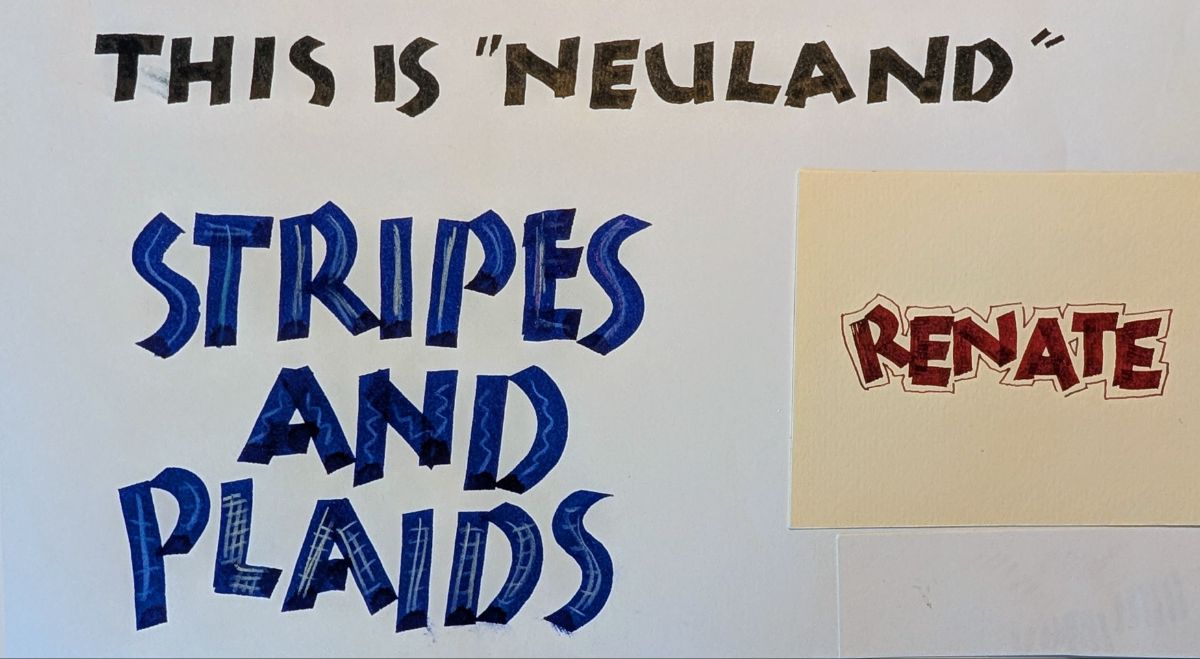 THIS IS "NEULAND"
STRIPES
AND
PLAIDS
RENATE